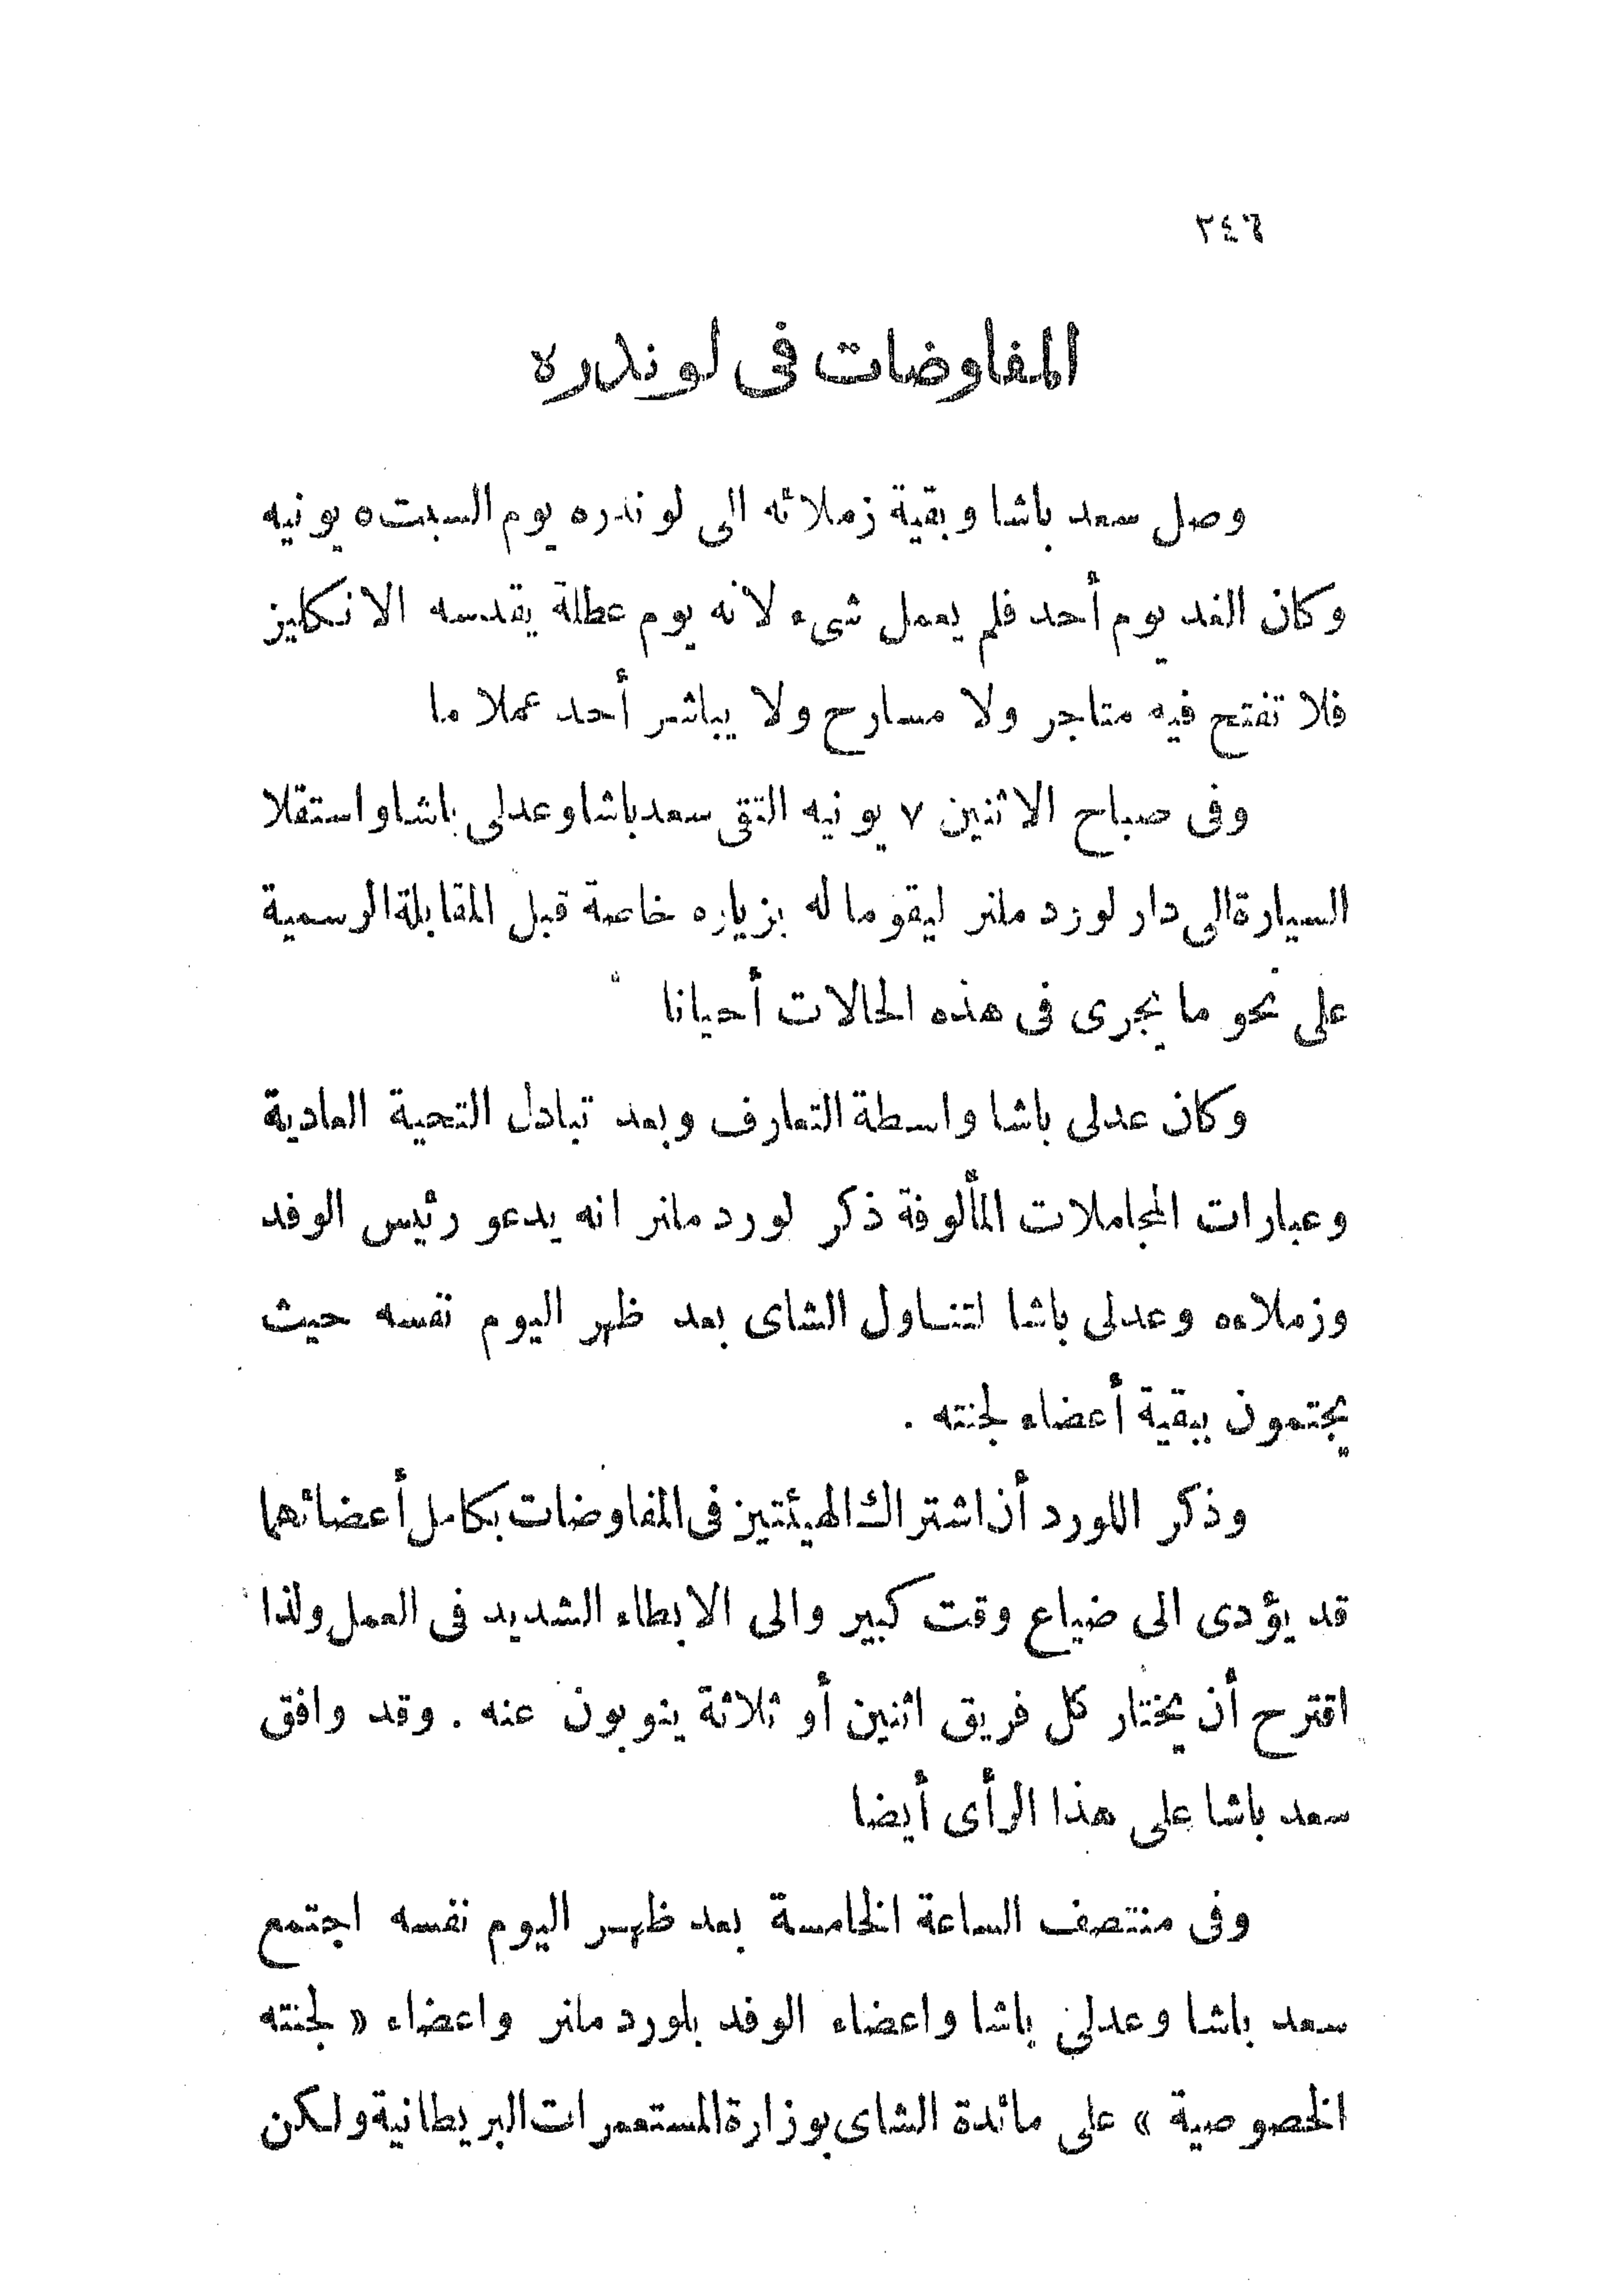 ٢٤٦
المفاوضات فى لوندره
وصل سعد باشا وبقية زملائه الى لوندره يوم السبت ٥ يونيه
وكان الغد يوم أحد فلم يعمل شىء لانه يوم عطلة يقدسه الانكليز
فلا تفتح فيه متاجر ولا مسارح ولا يباشر أحد عملا ما
وفى صباح الاثنين ٧ يونيه التقى سعد باشا وعدلى باشا واستقلا
السيارة الى دار لورد ملنر ليقوما له بزياره خاصة قبل المقابلة الرسمية
على نحو ما يجرى فى هذه الحالات أحيانا
وكان عدلى باشا واسطة التعارف وبعد تبادل التحية العادية
وعبارات المجاملات المألوفة ذكر لورد ملنر انه يدعو رئيس الوفد
وزملاءه وعدلى باشا لتناول الشاى بعد ظهر اليوم نفسه حيث
يجتمعون ببقية أعضاء لجنته .
وذكر اللورد أن اشتراك الهيئتين فى المفاوضات بكامل أعضائهما
قد يؤدى الى ضياع وقت كبير والى الابطاء الشديد فى العمل ولذا
اقترح أن يختار كل فريق اثنين أو ثلاثة ينوبون عنه . وقد وافق
سعد باشا على هذا الرأى أيضا
وفى منتصف الساعة الخامسة بعد ظهر اليوم نفسه اجتمع
سعد باشا وعدلى باشا واعضاء الوفد بلورد ملنر واعضاء « لجنته
الخصوصية » على مائدة الشاى بوزارة المستعمرات البريطانية ولكن